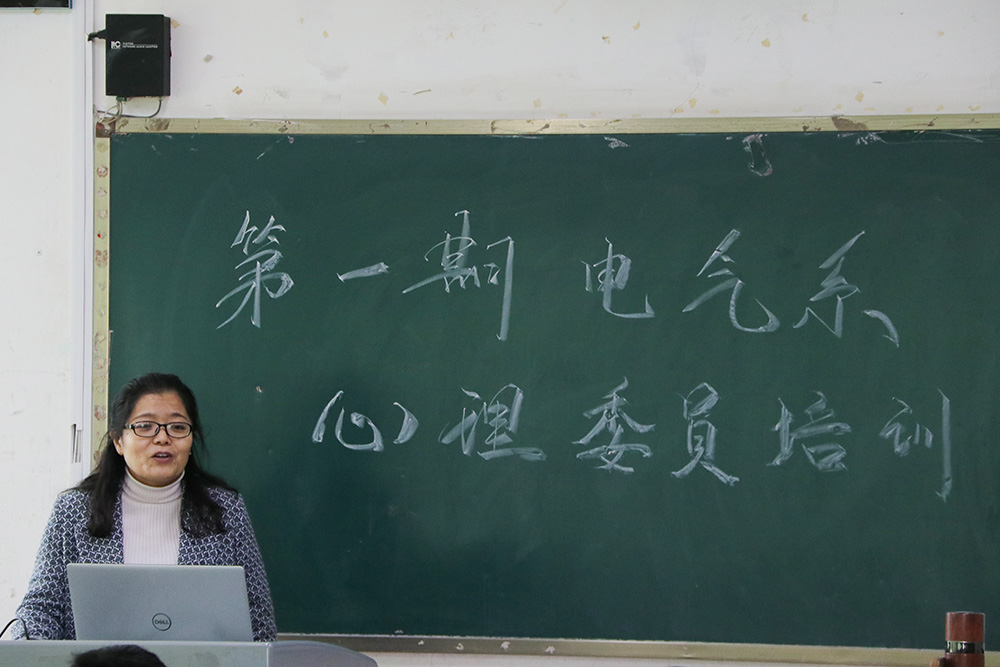 第一期电气系
心理委员培训
DELL